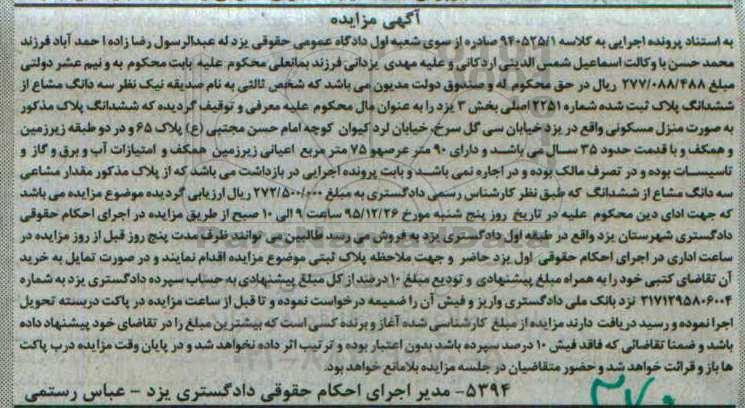 آگهی مزایده
به استناد پرونده اجرایی به کلاسه ۹۴۰۵۲۵/۱ صادره از سوی شعبه اول دادگاه عمومی حقوقی یزد له عبدالرسول رضا زاده احمد آباد فرزند
محمد حسن با وکالت اسماعیل شمس الدینی اردکانی و علیه مهدی یزدانی فرزند بمانعلی محکوم علیه بابت محکوم به و نیم عشر دولتی
مبلغ ۲۷۷/۰۸۸/۴۸۸ ریال در حق محکوم له و صندوق دولت مدیون می باشد که شخص ثالثی به نام صدیقه نیک نظر سه دانگ مشاع از
ششدانگ پلاک ثبت شده شماره ۲۲۵۱ اصلی بخش ۳ یزد را به عنوان مال محکوم علیه معرفی و توقیف گردیده که ششدانگ پلاک مذکور
به صورت منزل مسکونی واقع در یزد خیابان سی گل سرخ، خیابان لرد کیوان کوچه امام حسن مجتبی (ع) پلاک ۶۵ و در دو طبقه زیرزمین
و همکف و با قدمت حدود ۳۵ سال می باشد و دارای ۹۰ متر عرصه و ۷۵ متر مربع اعیانی زیرزمین همکف و امتیازات آب و برق و گاز و
تاسیسات بوده و در تصرف مالک بوده و در اجاره نمی باشد و بابت پرونده اجرایی در بازداشت می باشد که از پلاک مذکور مقدار مشاعی
سه دانگ مشاع از ششدانگ که طبق نظر کارشناس رسمی دادگستری به مبلغ ۲۷۲/۵۰۰/۰۰۰ ریال ارزیابی گردیده موضوع مزایده می باشد
که جهت ادای دین محکوم علیه در تاریخ روز پنج شنبه مورخ ۹۵/۱۲/۲۶ ساعت ۹ الی ۱۰ صبح از طریق مزایده در اجرای احکام حقوقی
دادگستری شهرستان یزد واقع در طبقه اول دادگستری یزد به فروش می رسد طالبین می توانند ظرف مدت پنج روز قبل از روز مزایده در
ساعت اداری در اجرای احکام حقوقی اول یزد حاضر و جهت ملاحظه پلاک ثبتی موضوع مزایده اقدام نمایند و در صورت تمایل به خرید
آن تقاضای کتبی خود را به همراه مبلغ پیشنهادی و تودیع مبلغ ۱۰ درصد از کل مبلغ پیشنهادی به حساب سپرده دادگستری یزد به شماره
۲۱۷۱۲۹۵۸۰۶۰۰۴ نزد بانک ملی دادگستری واریز و فیش آن را ضمیمه درخواست نموده و تا قبل از ساعت مزایده در پاکت دربسته تحویل
اجرا نموده و رسید دریافت دارند مزایده از مبلغ کارشناسی شده آغاز و برنده کسی است که بیشترین مبلغ را در تقاضای خود پیشنهاد داده
باشد و ضمنا تقاضائی که فاقد فیش ۱۰ درصد سپرده باشد بدون اعتبار بوده و ترتیب اثر داده نخواهد شد و در پایان وقت مزایده درب پاکت
ها باز و قرائت خواهد شد و حضور متقاضیان در جلسه مزایده بلامانع خواهد بود.
۵۳۹۴- مدیر اجرای احکام حقوقی دادگستری یزد - عباس رستمی